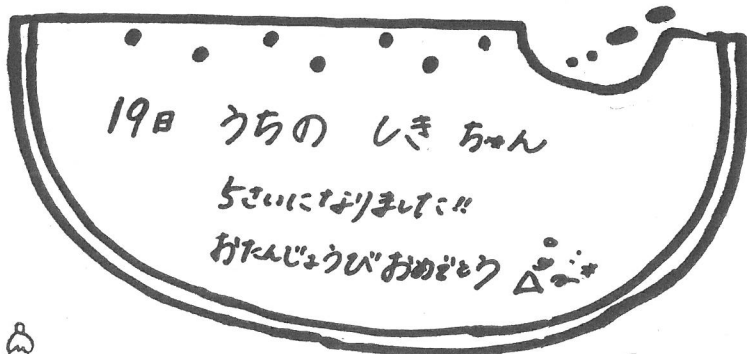 19日 うちの しき ちゃん
5さいになりました!!
おたんじょうびおめでとう